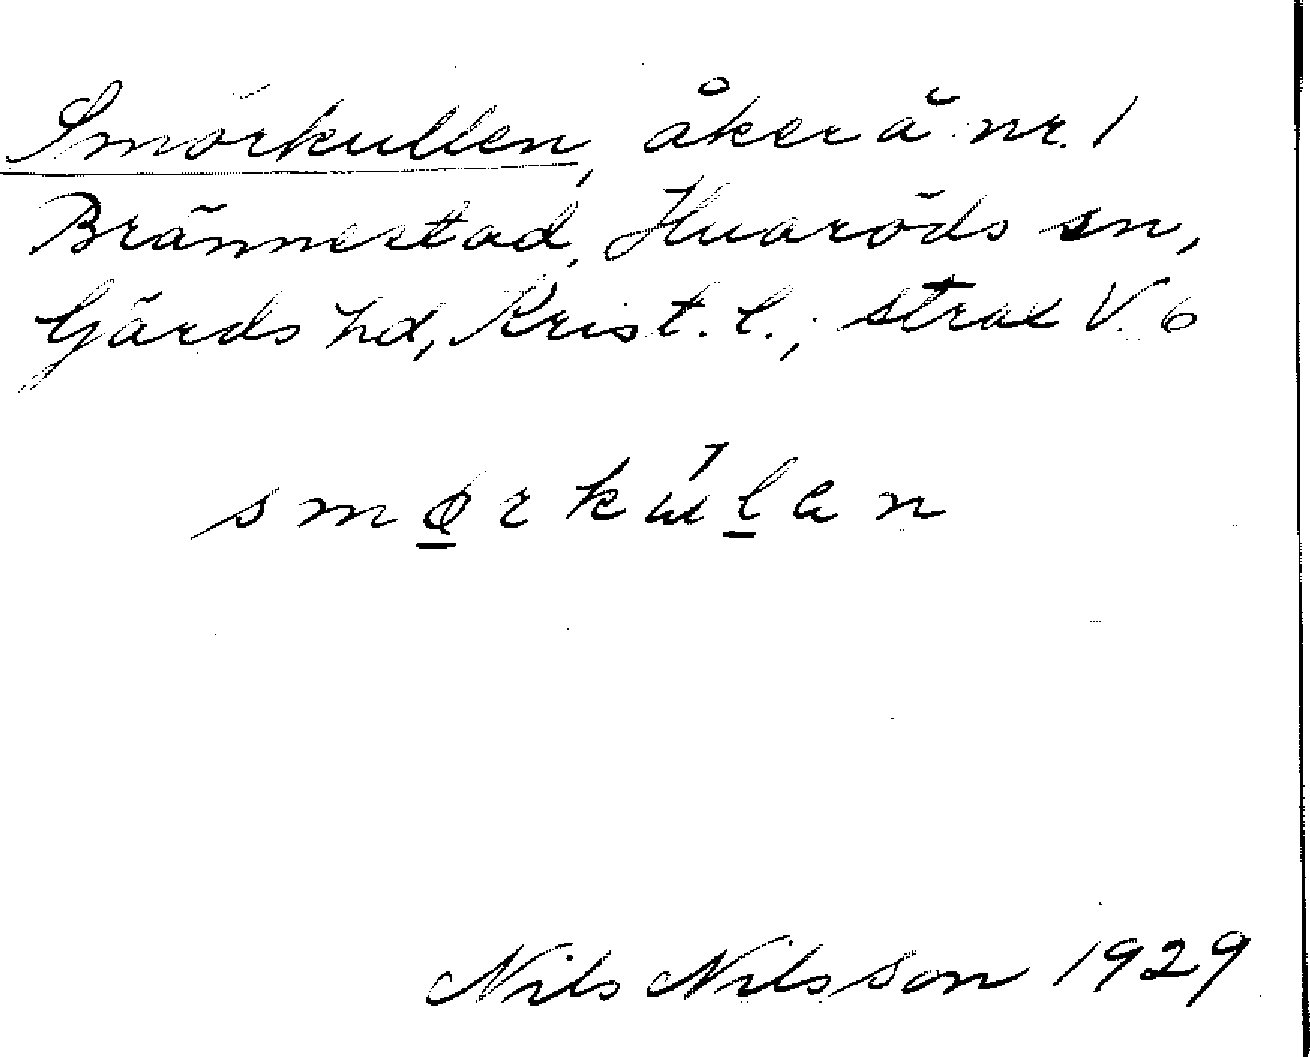 Smörkullen, åker å nr. 1
Brännestad, Huaröds sn,
Gärds hd, Krist. l.; strax V. 6
smørkúlan
Nils Nilsson 1929